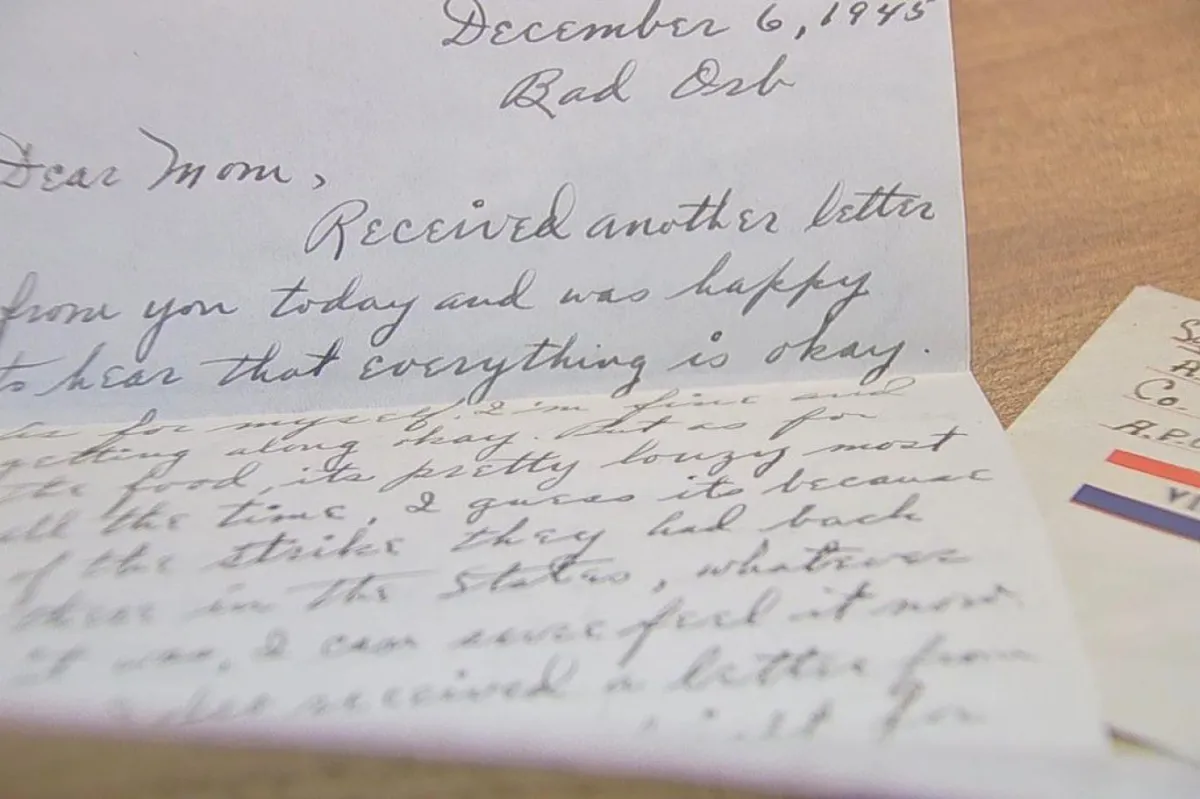 December 6, 1945
Bad Orb
Dear Mom,
Received another letter
from you today and was happy
to hear that everything is okay.
As for myself, I'm fine and
getting along okay. But as for
the food, its pretty louzy most
all the time, I guess its because
of the strike they had back
there in the States, whatever
it was, I can sure feel it now
received a letter from
for
Co.
A.P.